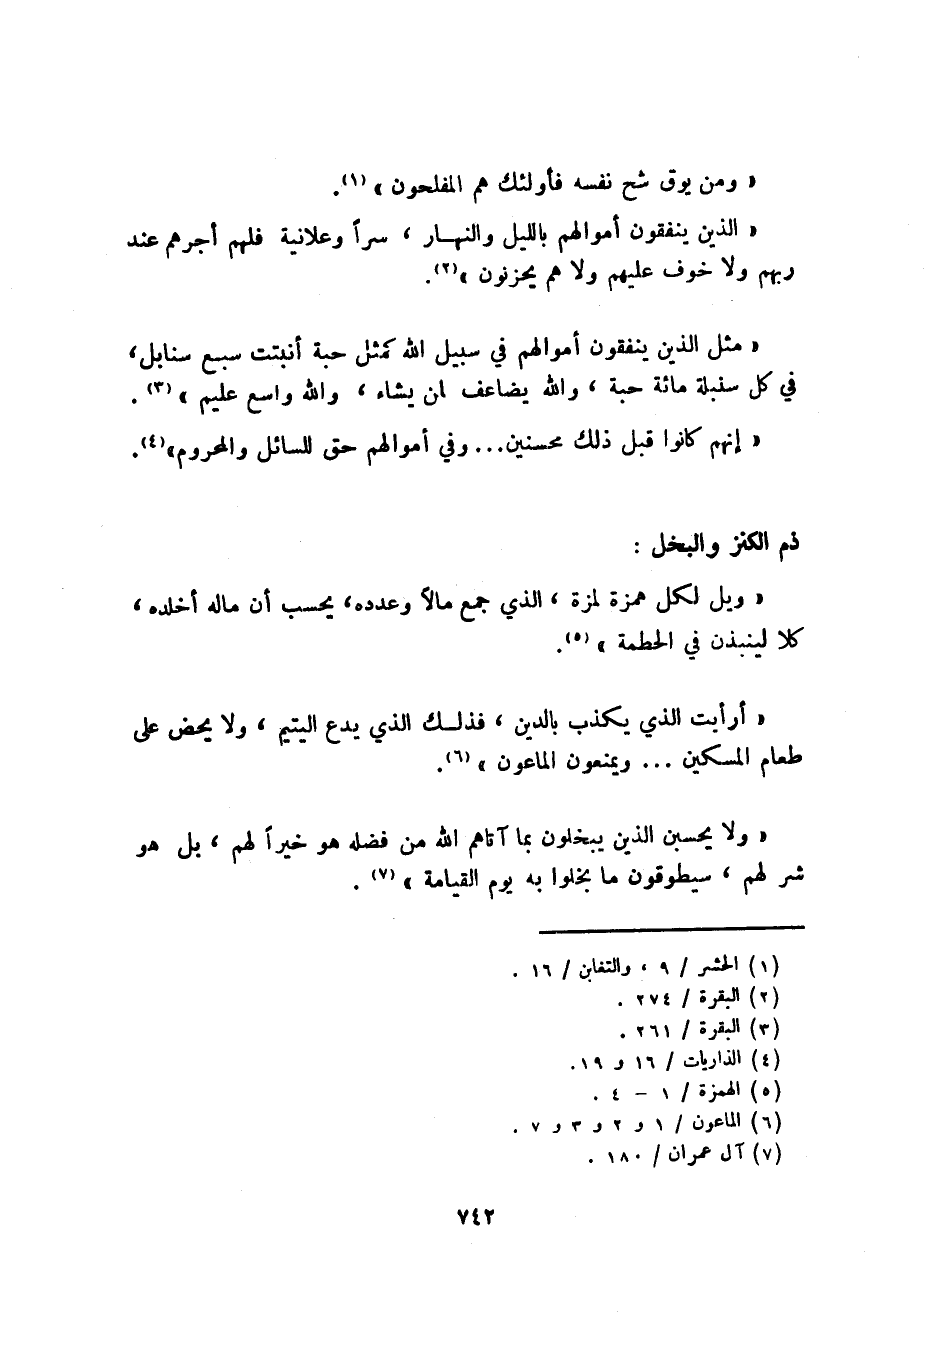 « ومن يوق شح نفسه فأولئك هم المفلحون » (١).
« الذين ينفقون أموالهم بالليل والنهـار ، سراً وعلانية فلهم أجرهم عند
ربهم ولا خوف عليهم ولا هم يحزنون »(٢).
« مثل الذين ينفقون أموالهم في سبيل الله كمثل حبة أنبتت سبع سنابل،
في كل سنبلة مائة حبة ، والله يضاعف لمن يشاء ، والله واسع عليم » (٣) .
« إنهم كانوا قبل ذلك محسنين... وفي أموالهم حق للسائل والمحروم»(٤).
ذم الكنز والبخل :
« ويل لكل همزة لمزة ، الذي جمع مالاً وعدده، يحسب أن ماله أخلده ،
كلا لينبذن في الحطمة » (٥).
« أرأيت الذي يكذب بالدين ، فذلـك الذي يدع اليتيم ، ولا يحض على
طعام المسكين ... ويمنعون الماعون » (٦).
« ولا يحسبن الذين يبخلون بما آتاهم الله من فضله هو خيراً لهم ، بل هو
شر لهم ، سيطوقون ما بخلوا به يوم القيامة » (٧) .
(١) الحشر / ٩ ، والتغابن / ١٦ .
(٢) البقرة / ٢٧٤ .
(٣) البقرة / ٢٦١ .
(٤) الذاريات / ١٦ و ١٩.
(٥) الهمزة / ١ – ٤ .
(٦) الماعون / ١ و ٢ و ٣ و ٧ .
(٧) آل عمران / ١٨٠ .
٧٤٢